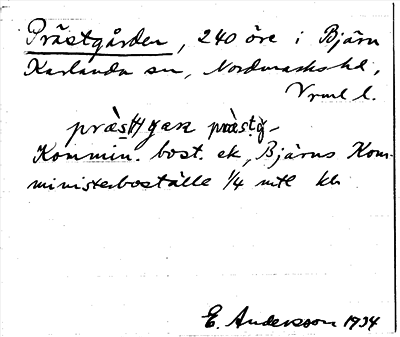 Prästgården, 240 öre i Bjärn
Karlanda sn, Nordmarks hd,
Vrml l.
præ̀s(t)gaɳ præ̀s.t.g-
Kommin. bost. ek, Bjärns Kom-
ministerboställe 1/4 mtl kh
E. Andersson 1934